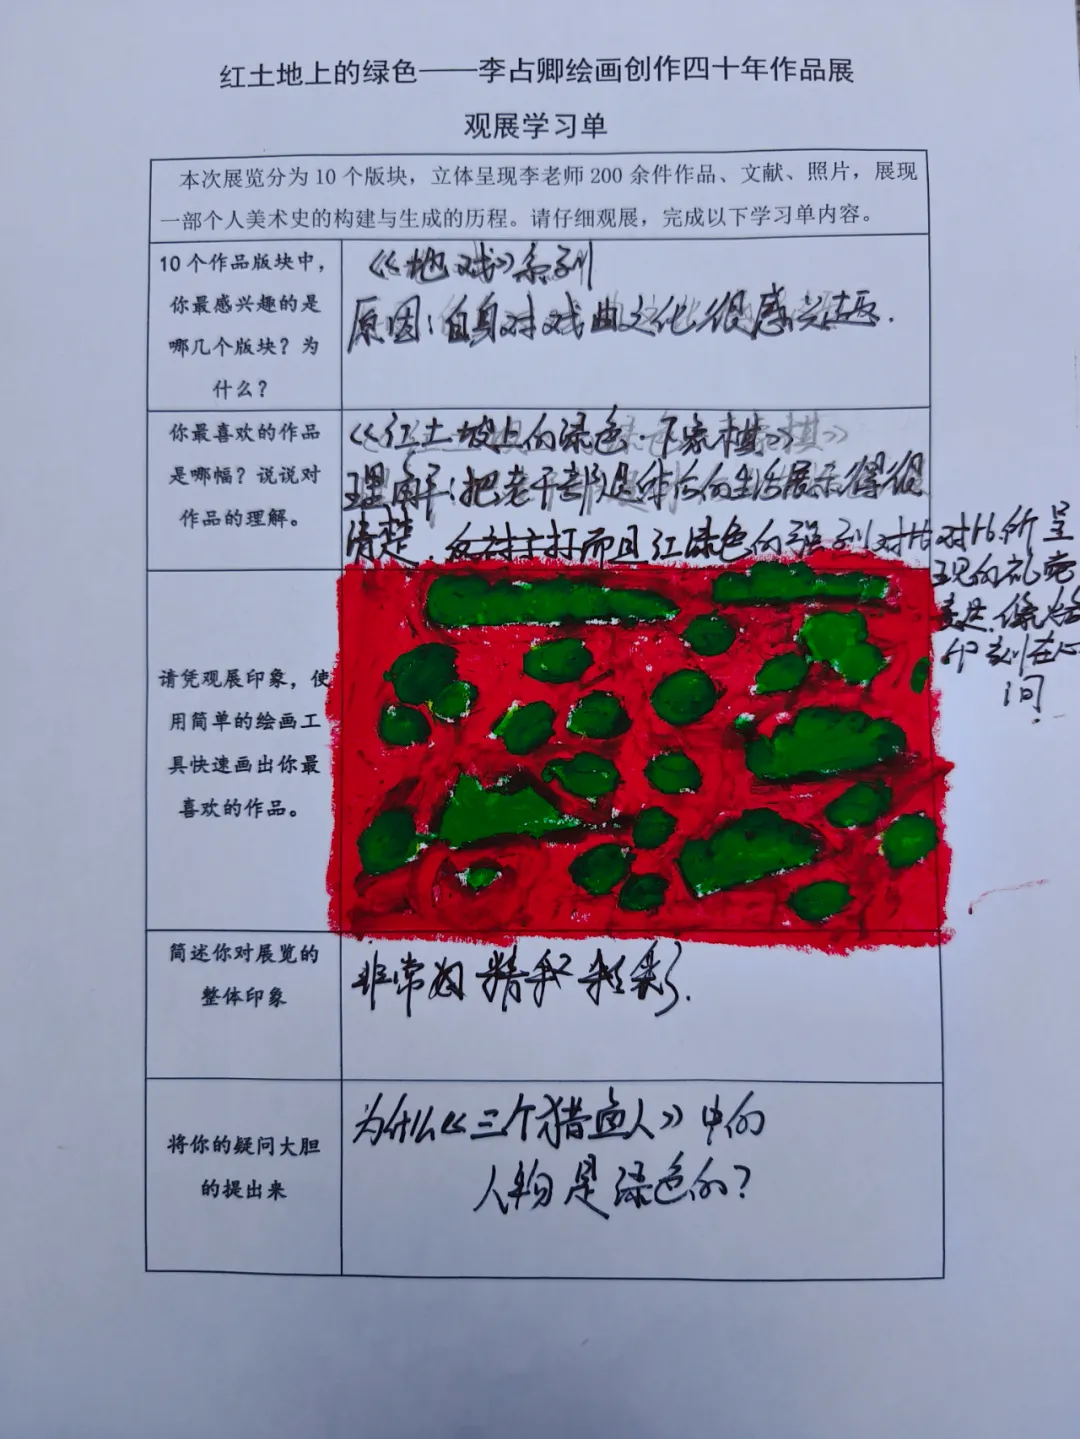 红土地上的绿色——李占卿绘画创作四十年作品展
观展学习单
本次展览分为10个版块，立体呈现李老师200余件作品、文献、照片，展现
一部个人美术史的构建与生成的历程。请仔细观展，完成以下学习单内容。
10个作品版块中，
你最感兴趣的是
哪几个版块？为
什么？
《地戏》系列
原因：自身对戏曲文化很感兴趣.
你最喜欢的作品
是哪幅？说说对
作品的理解。
《红土坡上的绿色·下象棋》
理解：把老干部退休后的生活展示得很
清楚. 而且红绿色的强烈对比
对比所呈
现的视觉
始
印刻在心
间.
请凭观展印象，使
用简单的绘画工
具快速画出你最
喜欢的作品。
简述你对展览的
整体印象
非常好 精彩
将你的疑问大胆
的提出来
为什么《三个猎鱼人》中的
人物是绿色的？